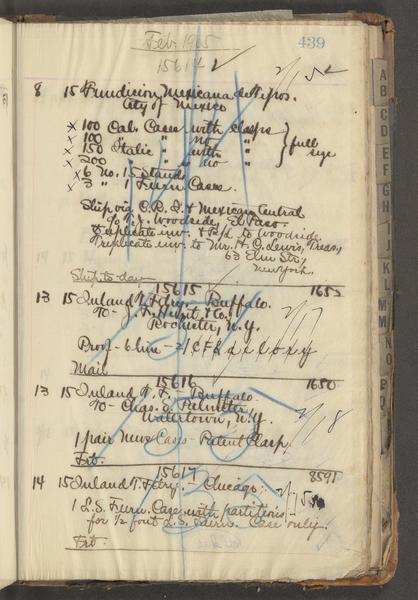 Feb. 1905
439
15614
8 15 Fundicion Mexicana de Tipos.
City of Mexico
x 100 Cal. Cases with clasps
x 100 " " no "
x 150 Italic " with " full
x 200 " " no " size
x 6 No. 15 Stands
x 3 " 1 Furn. Cases.
Ship via C.R.I. & Mexican Central
c/o T.J. Woodside El Paso.
Duplicate inv. & B/L to Woodside
Triplicate inv. to Mr. H. G. Lewis, Treas,
63 Elm St,
New York.
Ship to-day
15615 1655
13 15 Inland T. Fdry. Buffalo.
To-
Rochester, N.Y.
Proof - 6 line -
Mail
15616 1650
13 15 Inland T. F. - Buffalo.
To- Chas. E.
Watertown, N.Y.
1 pair News Cases - Patent Clasp.
Frt.
15617 8591
14 15 Inland T. Fdry. - Chicago.
1 L.S. Furn. Case with partitions
for 1/2 font L.S. Furn. Case only.
Frt.
A
B
C
D
E
F
G
H
J
K
L
M
N
O
P
Q